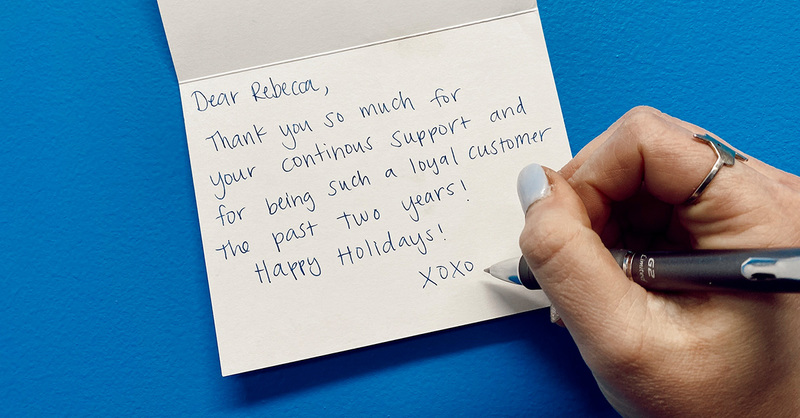 Dear Rebecca,
Thank you so much for
your continous support and
for being such a loyal customer
the past two years!
Happy Holidays!
XOXO
G2